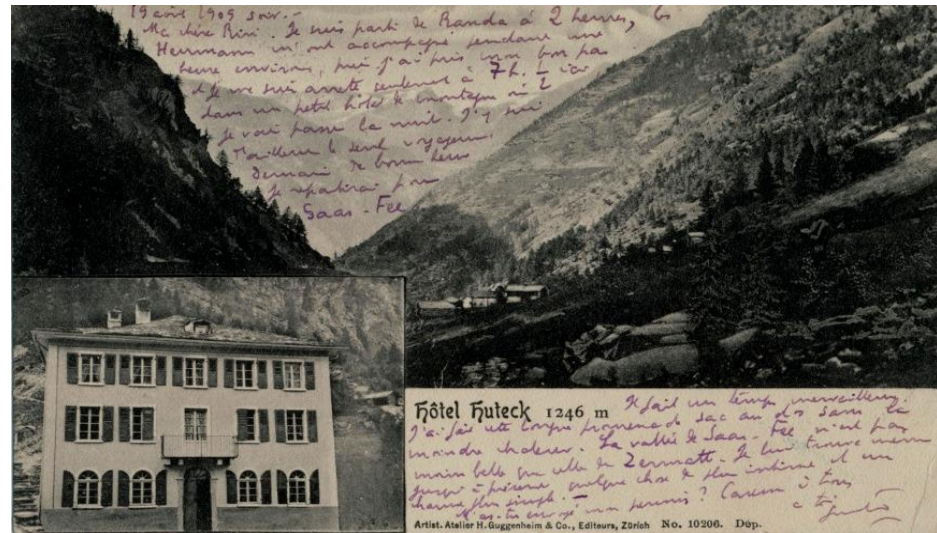 19 août 1909 soir. -
Ma chère Rini. Je suis parti de Randa à 2 heures, les
Herrmann m'ont accompagné pendant une
heure environ, puis j'ai pris mon bon pas
et je me suis arrêté seulement à 7h. ici
dans un petit hôtel de montagne où
je vais passer la nuit. J'y suis
d'ailleurs le seul voyageur.
Demain de bonne heure
je repartirai pour
Saas-Fée
Hôtel Huteck 1246 m
Il fait un temps merveilleux.
J'ai fait cette longue promenade sac au dos sans la
moindre chaleur. La vallée de Saas-Fée n'est pas
moins belle que celle de Zermatt. Je lui trouve même
jusqu'à présent quelque chose de plus intime et un
charme plus simple. -
M'as-tu envoyé mon permis? à tous
à toi
Artist. Atelier H. Guggenheim & Co., Editeurs, Zürich No. 10206. Dép.